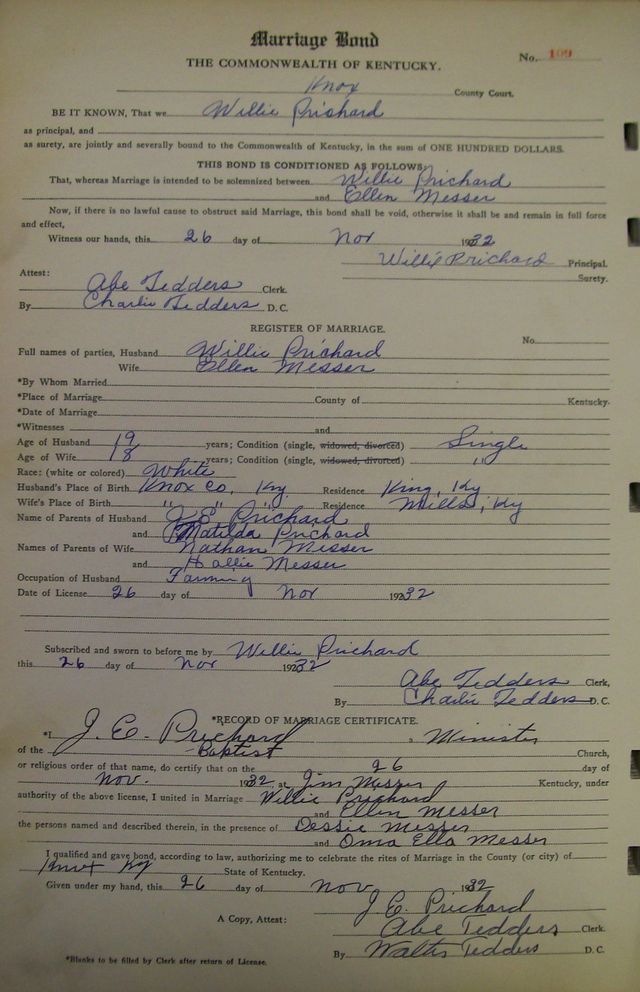 Marriage Bond
No. 109
THE COMMONWEALTH OF KENTUCKY.
Knox County Court.
BE IT KNOWN, That we Willie Prichard
as principal, and
as surety, are jointly and severally bound to the Commonwealth of Kentucky, in the sum of ONE HUNDRED DOLLARS.
THIS BOND IS CONDITIONED AS FOLLOWS:
That, whereas Marriage is intended to be solemnized between Willie Prichard
and Ellen Messer
Now, if there is no lawful cause to obstruct said Marriage, this bond shall be void, otherwise it shall be and remain in full force
and effect,
Witness our hands, this 26 day of Nov 1932
Willie Prichard Principal.
Attest: Surety.
Abe Tedders Clerk.
By Charlie Tedders D. C.
REGISTER OF MARRIAGE.
No.
Full names of parties, Husband Willie Prichard
Wife Ellen Messer
*By Whom Married
*Place of Marriage County of Kentucky.
*Date of Marriage
*Witnesses and
Age of Husband 19 years; Condition (single, widowed, divorced) Single
Age of Wife 18 years; Condition (single, widowed, divorced) "
Race: (white or colored) White
Husband's Place of Birth Knox Co, Ky Residence King, Ky
Wife's Place of Birth " " Residence Mills, Ky
Name of Parents of Husband J E Prichard
and Matilda Prichard
Names of Parents of Wife Nathan Messer
and Hallie Messer
Occupation of Husband Farming
Date of License 26 day of Nov 1932
Subscribed and sworn to before me by Willie Prichard
this 26 day of Nov 1932
Abe Tedders Clerk,
By Charlie Tedders D. C.
*RECORD OF MARRIAGE CERTIFICATE.
*I J. E. Prichard a Minister
of the Baptist Church,
or religious order of that name, do certify that on the 26 day of
Nov. 1932 at Jim Messer Kentucky, under
authority of the above license, I united in Marriage Willie Prichard
and Ellen Messer
the persons named and described therein, in the presence of Dessie Messer
and Oma Ella Messer
I qualified and gave bond, according to law, authorizing me to celebrate the rites of Marriage in the County (or city) of
Knox Ky State of Kentucky.
Given under my hand, this 26 day of Nov 1932
J. E. Prichard
A Copy, Attest: Abe Tedders Clerk.
By Walter Tedders D. C.
*Blanks to be filled by Clerk after return of License.